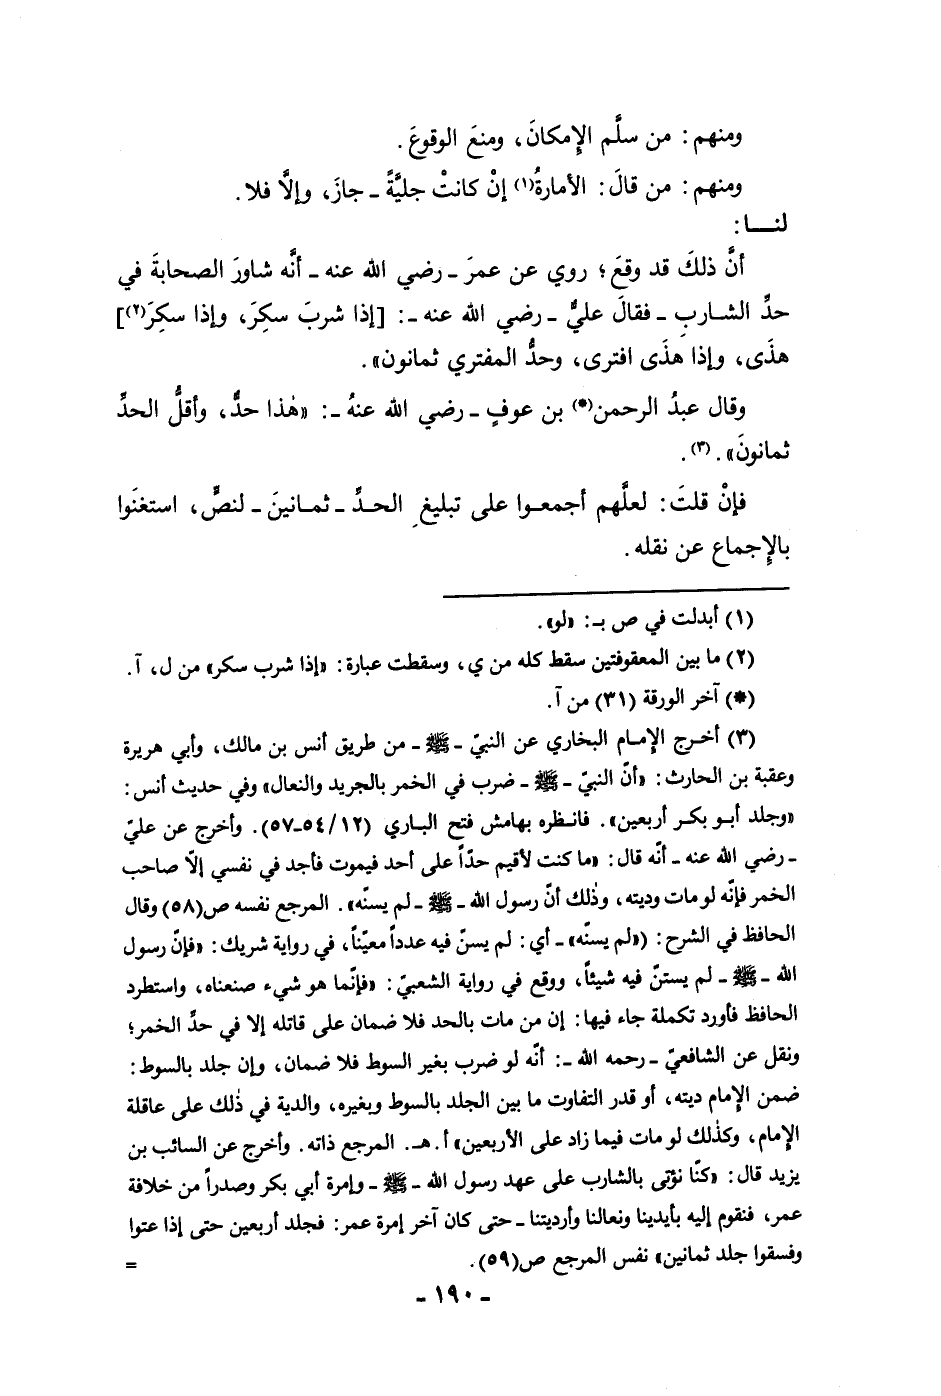 ومنهم: من سلَّم الإِمكانَ، ومنعَ الوقوعَ.
ومنهم: من قالَ: الأمارةُ(١) إنْ كانتْ جليَّةً ـ جازَ، وإلَّا فلا.
لنـــا:
أنَّ ذلكَ قد وقعَ؛ روي عن عمرَ ـ رضي الله عنه ـ أنَّه شاورَ الصحابةَ في
حدِّ الشـاربِ ـ فقالَ عليٌّ ـ رضي الله عنه ـ: [إذا شربَ سكِرَ، وإذا سكِرَ(٢)]
هذَى، وإذا هذَى افترى، وحدُّ المفتري ثمانون».
وقال عبدُ الرحمن(*) بن عوفٍ ـ رضي الله عنهُ ـ: «هٰذا حدٌّ، وأقلُّ الحدِّ
ثمانونَ». (٣).
فإنْ قلتَ: لعلَّهم أجمعـوا على تبليغِ الحـدِّ ـ ثمـانينَ ـ لنصٍّ، استغنَوا
بالإِجماع عن نقله.
(١) أبدلت في ص بـ: «لو».
(٢) ما بين المعقوفتين سقط كله من ي، وسقطت عبارة: «إذا شرب سكر» من ل، آ.
(*) آخر الورقة (٣١) من آ.
(٣) أخـرج الإِمـام البخاري عن النبيّ ـ ﷺ ـ من طريق أنس بن مالك، وأبي هريرة
وعقبة بن الحارث: «أنّ النبيّ ـ ﷺ ـ ضرب في الخمر بالجريد والنعال» وفي حديث أنس:
«وجلد أبـو بكـر أربعين». فانـظره بهامش فتح البـاري (١٢/٥٤ـ٥٧). وأخرج عن عليّ
ـ رضي الله عنه ـ أنّه قال: «ما كنت لأقيم حدّاً على أحد فيموت فأجد في نفسي إلّا صاحب
الخمر فإنّه لو مات وديته، وذٰلك أنّ رسول الله ـ ﷺ ـ لم يسنّه». المرجع نفسه ص(٥٨) وقال
الحافظ في الشرح: («لم يسنّه» ـ أي: لم يسنّ فيه عدداً معيّناً، في رواية شريك: «فإنّ رسول
الله ـ ﷺ ـ لم يستنّ فيه شيئاً، ووقع في رواية الشعبيّ: «فإنّما هو شيء صنعناه، واستطرد
الحافظ فأورد تكملة جاء فيها: إن من مات بالحد فلا ضمان على قاتله إلا في حدِّ الخمر؛
ونقل عن الشافعيّ ـ رحمه الله ـ: أنّه لو ضرب بغير السوط فلا ضمان، وإن جلد بالسوط:
ضمن الإِمام ديته، أو قدر التفاوت ما بين الجلد بالسوط وبغيره، والدية في ذٰلك على عاقلة
الإِمام، وكذٰلك لو مات فيما زاد على الأربعين» أ. هـ. المرجع ذاته. وأخرج عن السائب بن
يزيد قال: «كنّا نؤتى بالشارب على عهد رسول الله ـ ﷺ ـ وإمرة أبي بكر وصدراً من خلافة
عمر، فنقوم إليه بأيدينا ونعالنا وأرديتنا ـ حتى كان آخر إمرة عمر: فجلد أربعين حتى إذا عتوا
وفسقوا جلد ثمانين» نفس المرجع ص(٥٩).   =
ـ ١٩٠ ـ